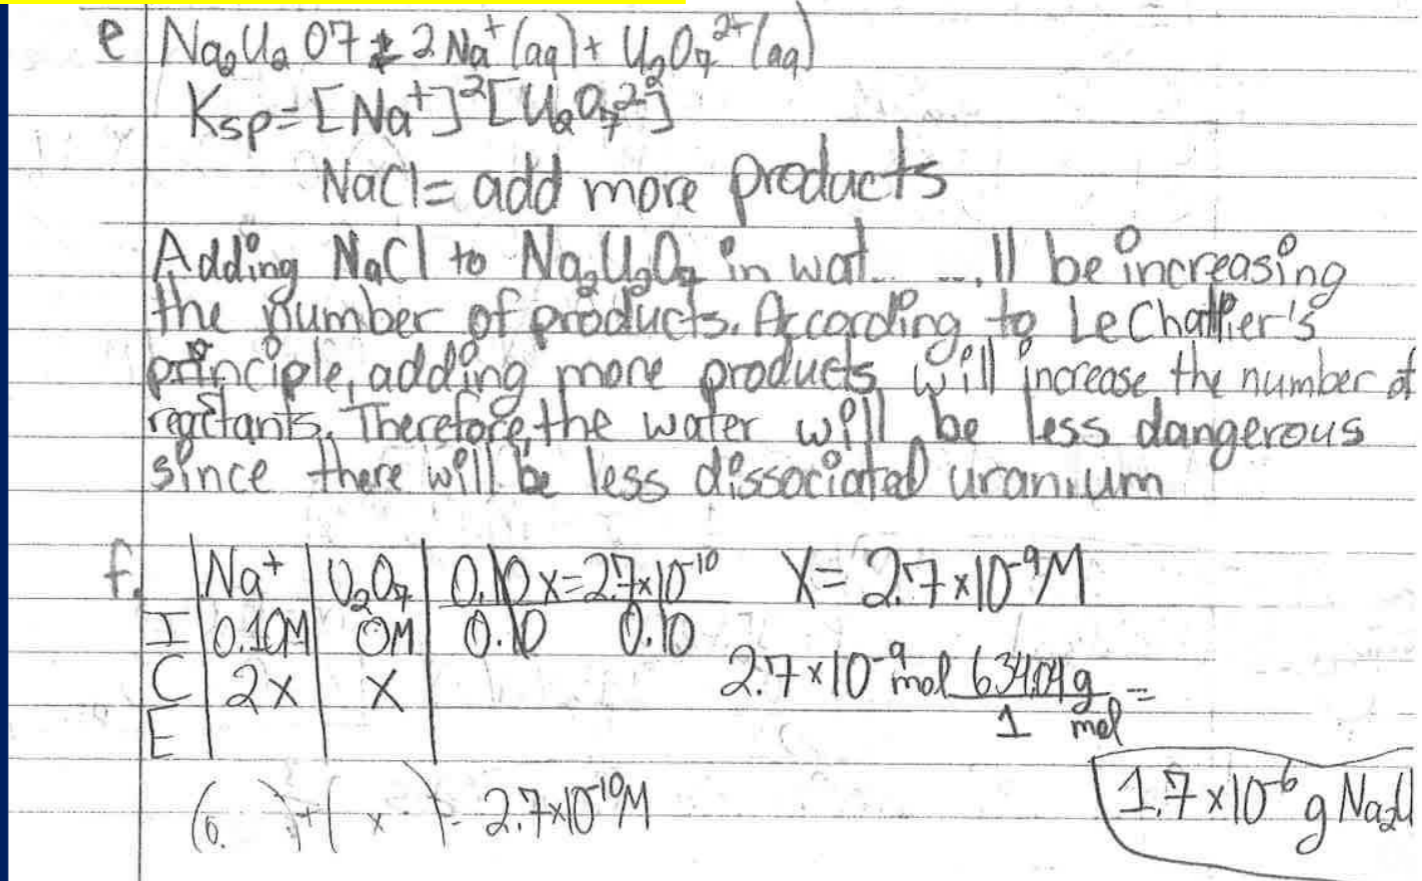 e Na₂U₂O7 ⇄ 2Na⁺(aq) + U₂O₇²⁺(aq)
Ksp = [Na⁺]²[U₂O₇²⁻]
NaCl = add more products
Adding NaCl to Na₂U₂O₇ in wat... ...ll be increasing
the number of products. According to Le Chatlier's
principle, adding more products will increase the number of
reactants. Therefore, the water will be less dangerous
since there will be less dissociated uranium
f. Na⁺ U₂O₇ 0.10x = 2.7×10⁻¹⁰ X = 2.7×10⁻⁹M
I 0.10M 0M 0.10 0.10
C 2x x 2.7×10⁻⁹ mol 634.04g =
E 1 mol
(0. )+( x ) = 2.7×10⁻¹⁰M
1.7×10⁻⁶ g Na₂U